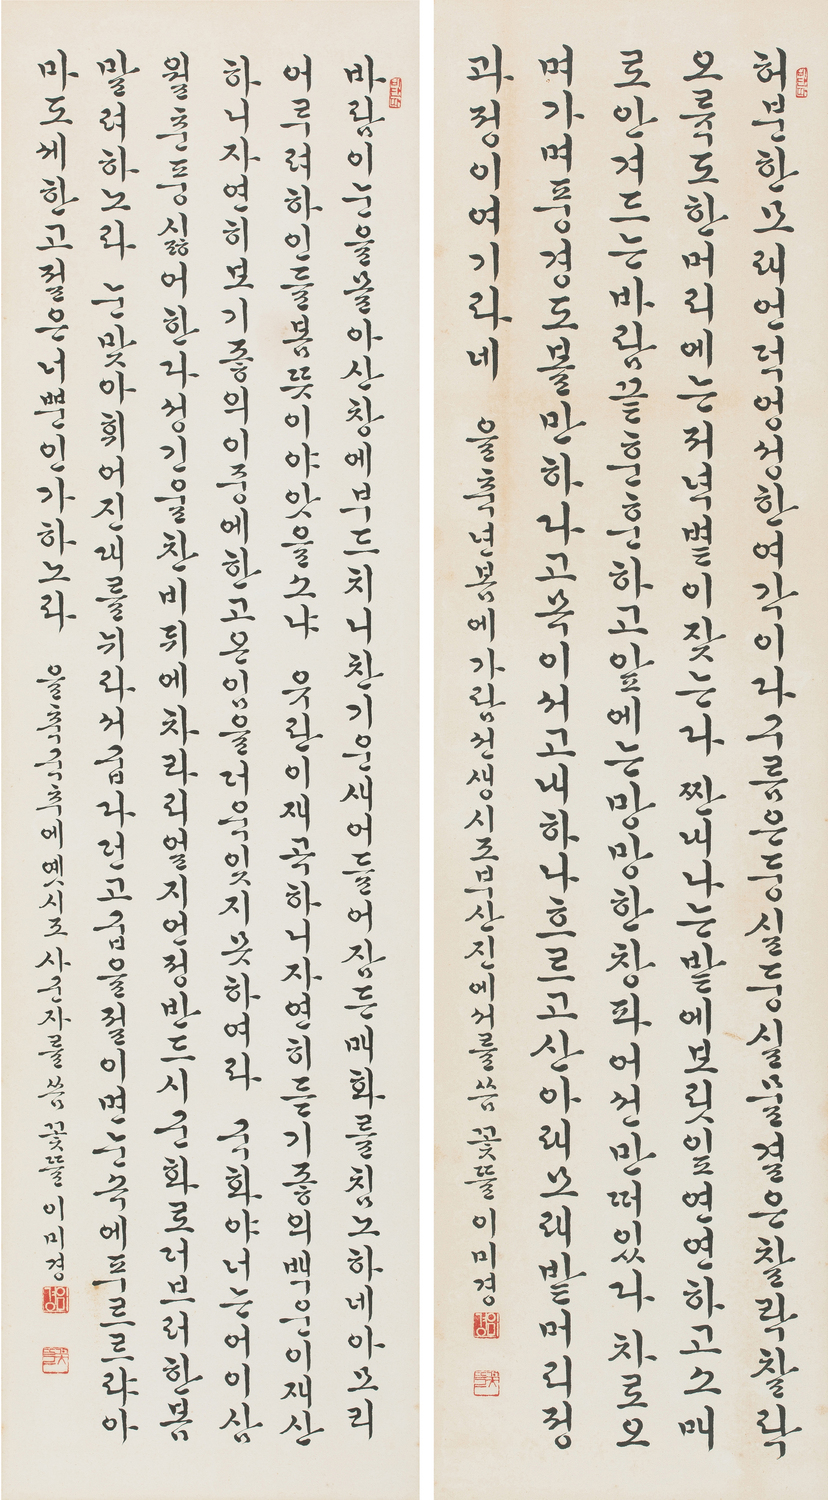 허분한모래언덕엉성한여각이다구름은둥실둥실물결은찰락찰락
오륙도한머리에는저녁볕이잦는다 짠내나는밭에보릿잎연연하고소매
로안겨드는바람끝훈훈하고앞에는망망한창파어선만떠있다 차로오
며가며풍경도볼만하다고목이서고내하나흐르고산아래모래밭머리정
과정이여기라네 을축년봄에가람선생시조부산진에서를씀 꽃뜰이미경
바람이눈을몰아산창에부드치니찬기운새어들어잠든매화를침노하네아모리
어루려하인들봄뜻이야앗을소냐 유란이재곡하니자연히듣기좋의백운이재산
하니자연히보기좋의이중에한고온임을더욱잊지못하여라 국화야너는어이삼
월춘풍싫어한다성긴울찬비뒤에차라리얼지언정반드시군화로더브러한봄
말려하노라 눈맞아휘어진대를뉘라서굽다런고굽을절이면눈속에푸르르랴아
마도세한고절은너뿐인가하노라 을축국추에옛시조사군자를씀 꽃뜰이미경